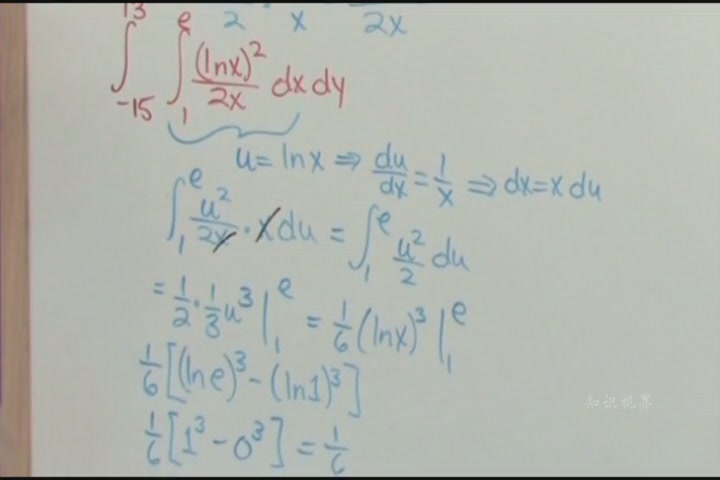 2 x 2x
∫_{-15}^{13} ∫_1^e (lnx)²/2x dx dy
u = lnx ⇒ du/dx = 1/x ⇒ dx = x du
∫_1^e u²/2x · x du = ∫_1^e u²/2 du
= 1/2 · 1/3 u³ |_1^e = 1/6 (lnx)³ |_1^e
1/6 [(lne)³ - (ln1)³]
1/6 [1³ - 0³] = 1/6
知识视界